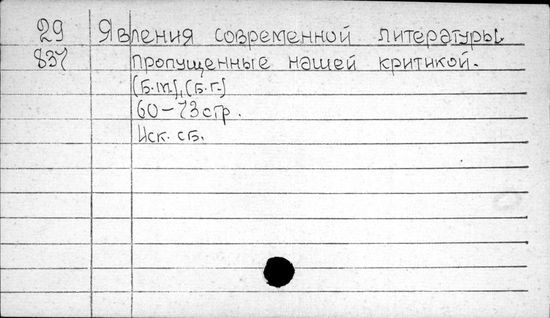 29 Явления современной литературы
837 пропущенные нашей критикой.
(Б.м), (Б.г.)
60-73 стр.
Иск. сб.